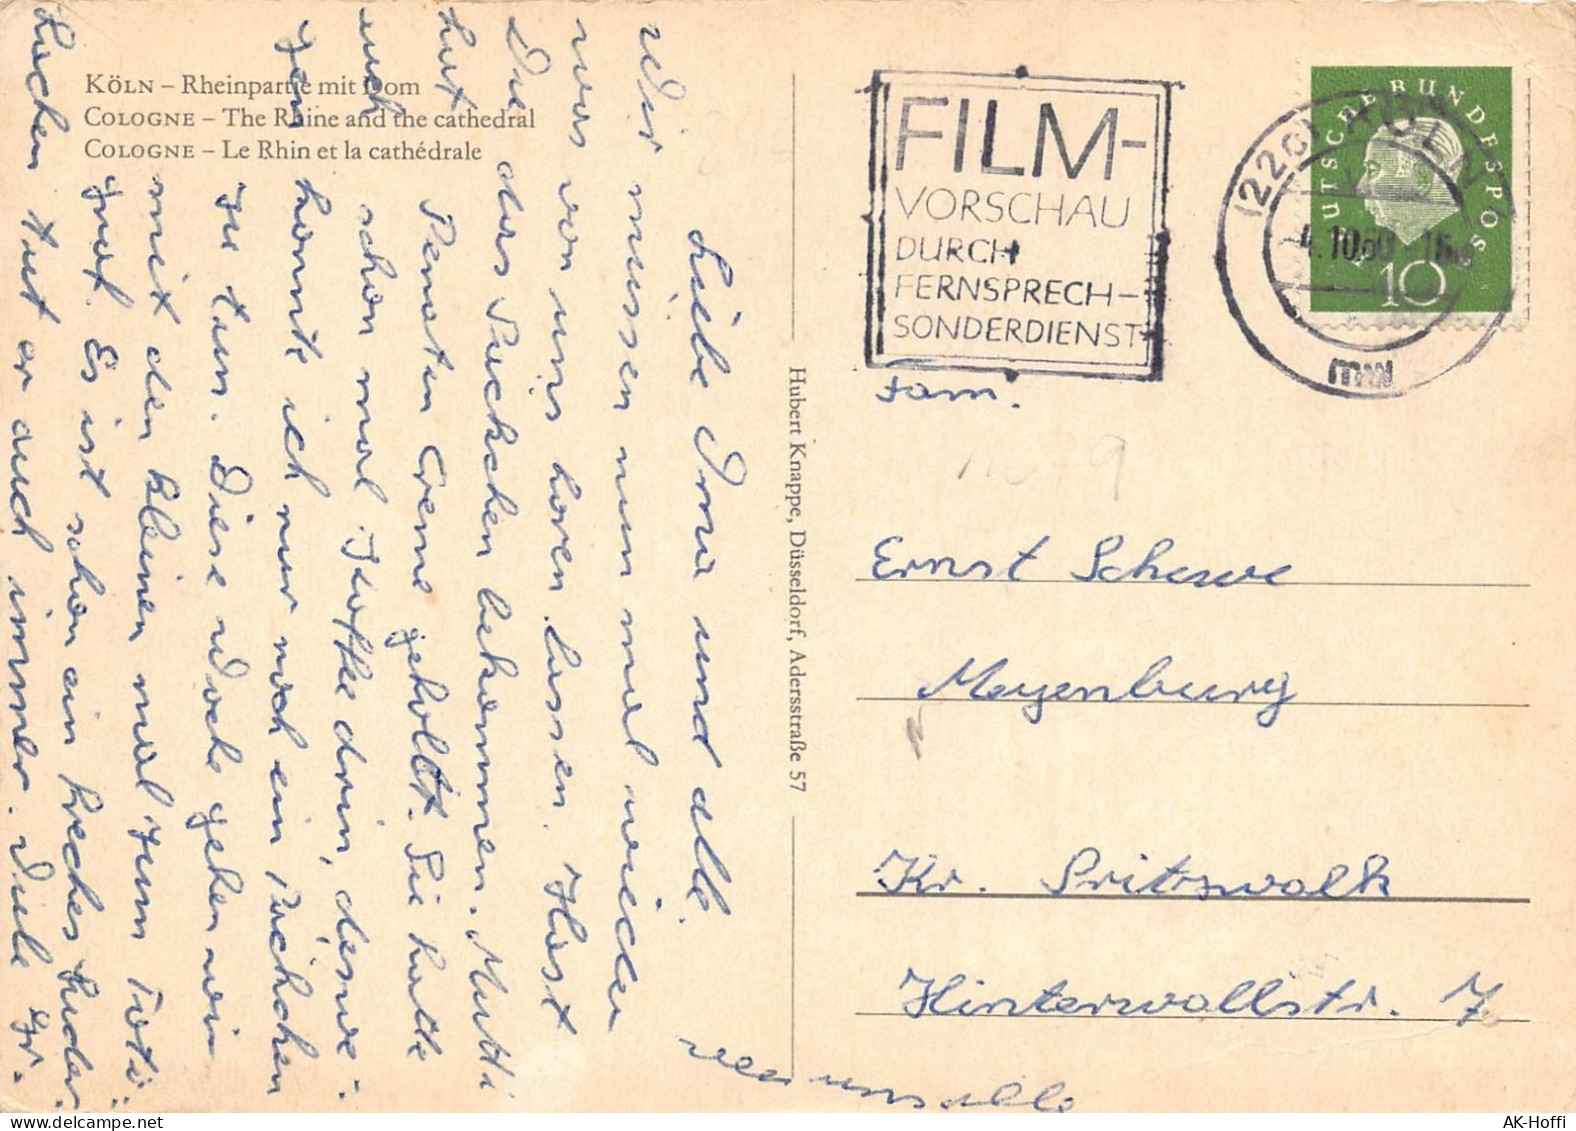 KÖLN – Rheinpartie mit Dom
COLOGNE – The Rhine and the cathedral
COLOGNE – Le Rhin et la cathédrale
Liebe Oma und alle.
Wir müssen nun mal wieder
was von uns hören lassen. Hast
Du das Päckchen bekommen. Mutti
hat Penaten Creme geholt. Sie hatte
auch schon mal Kaffee drin, deswe-
gen konnte ich nur noch ein Päckchen
zu tun. Diese Woche gehen wir
mit den kleinen mal zum Foto-
graf. Es ist schon ein freches Luder.
Lachen tut er auch immer. Viele Gr.
von uns alle
Hubert Knappe, Düsseldorf, Adersstraße 57
FILM-
VORSCHAU
DURCH
FERNSPRECH-
SONDERDIENST
(22c) KÖLN
4.10.60
DEUTSCHE BUNDESPOST
10
Fam.
Ernst Schewe
Meyenburg
Kr. Pritzwalk
Hinterwallstr. 7
AK-Hoffi